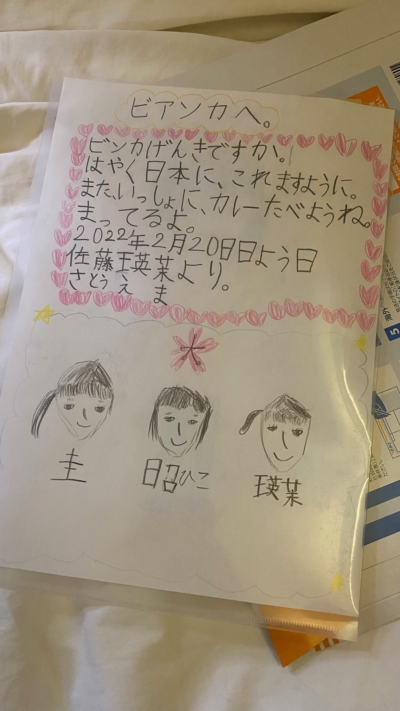 ビアンカへ。
ビンカげんきですか。
はやく日本に、これますように。
また、いっしょに、カレーたべようね。
まってるよ。
2022年2月20日日よう日
佐藤瑛菜より。
さとう え ま
大
圭
昭ひこ
瑛菜
5